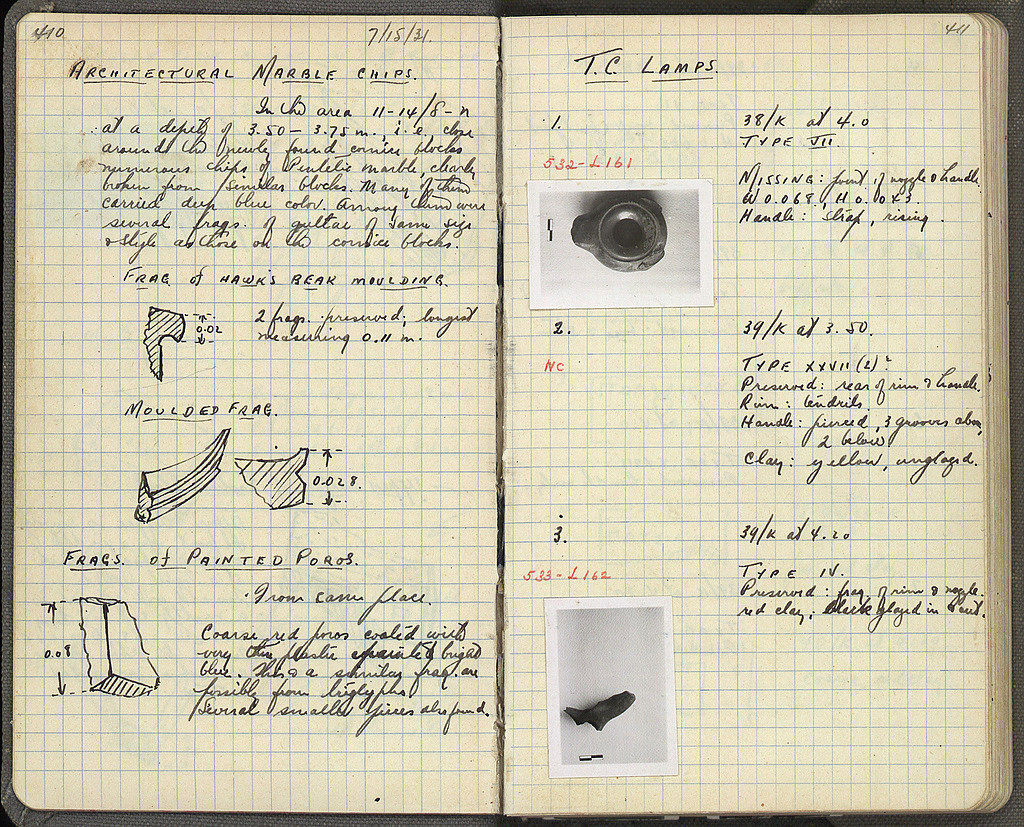 410
7/15/31.
ARCHITECTURAL MARBLE CHIPS.
In the area 11-14/8-n
at a depth of 3.50-3.75 m., i.e. close
around the newly found cornice blocks
numerous chips of Pentelic marble, clearly
broken from similar blocks. Many of them
carried deep blue color. Among them were
several frags. of guttae of same size
& style as those on the cornice blocks.
FRAG. of HAWK'S BEAK MOULDING.
0.02
2 frags. preserved; longest
measuring 0.11 m.
MOULDED FRAG.
0.028.
FRAGS. of PAINTED POROS.
From same place.
0.08
Coarse red poros coated with
very thin plaster painted bright
blue. This & a similar frag. are
possibly from triglyphs.
Several smaller pieces also found.
411
T.C. LAMPS.
1.
38/K at 4.0
TYPE VII.
532-L161
MISSING: front of nozzle & handle.
W 0.068, H 0.043.
Handle: strap, rising.
2.
39/K at 3.50.
NC
TYPE XXVII (2)?
Preserved: rear of rim & handle.
Rim: tendrils.
Handle: pierced, 3 grooves above,
2 below.
Clay: yellow, unglazed.
3.
39/K at 4.20
533-L162
TYPE IV.
Preserved: frag. of rim & nozzle.
red clay; black glazed in & out.